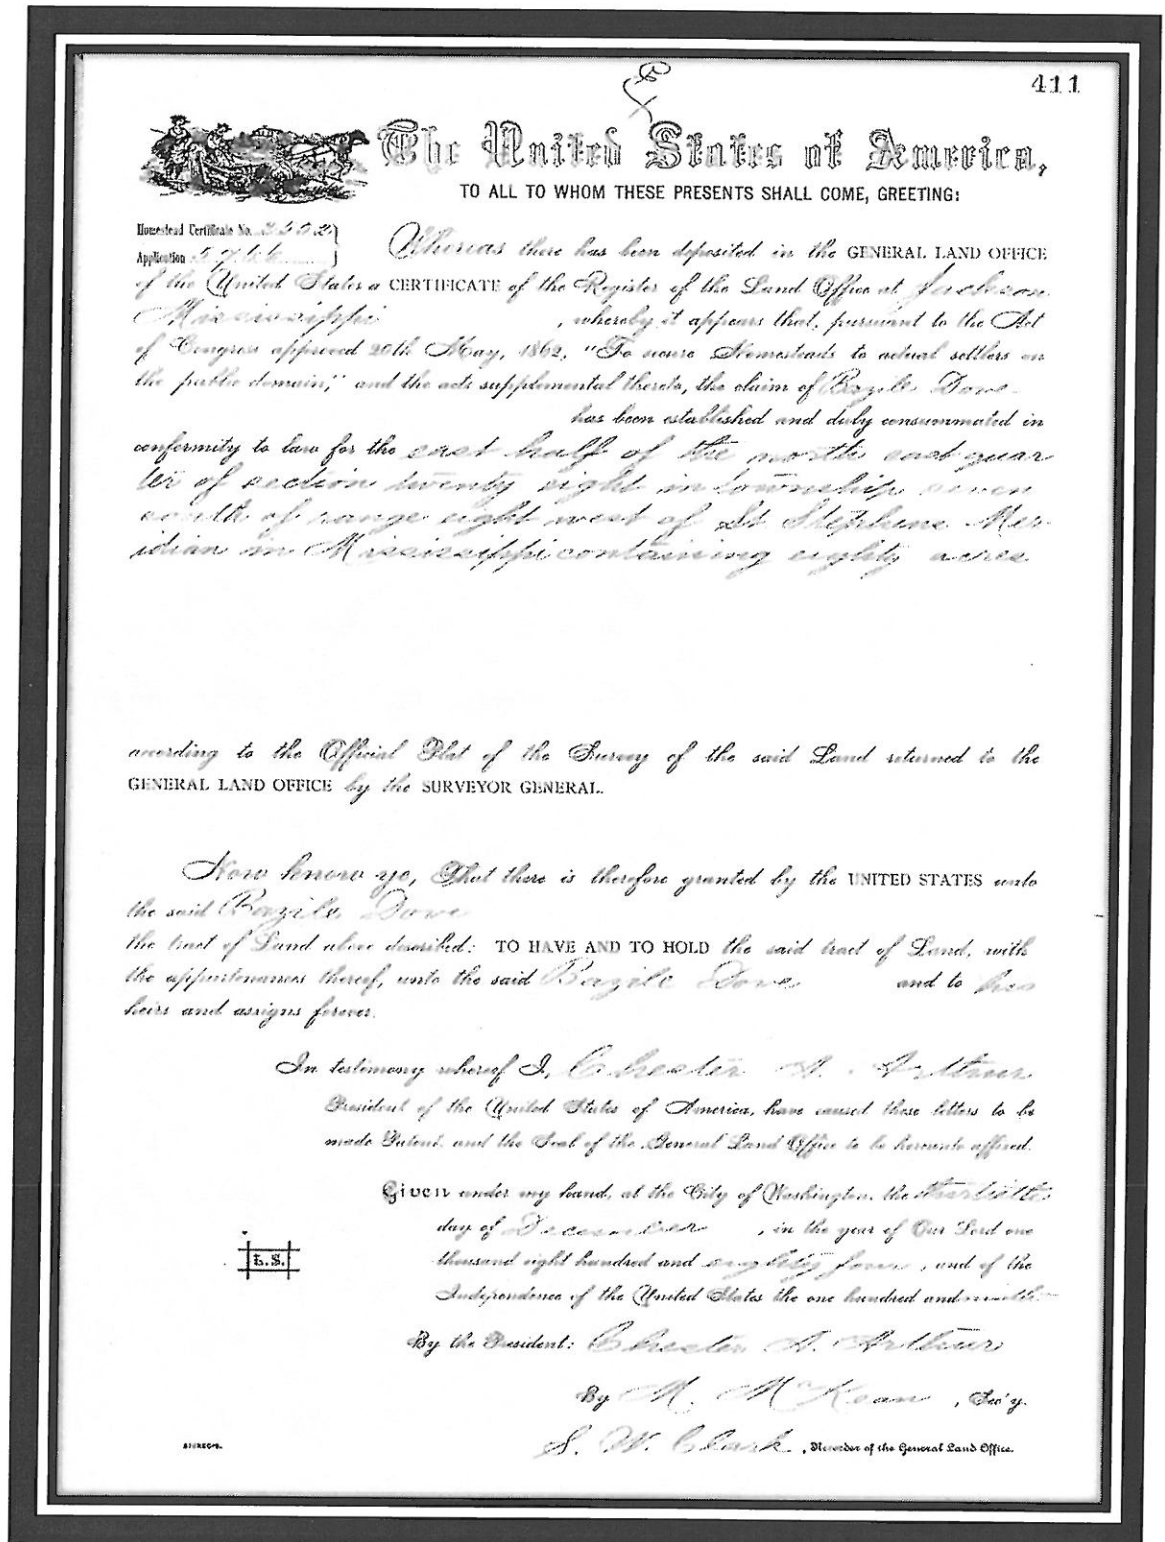 411
The United States of America,
TO ALL TO WHOM THESE PRESENTS SHALL COME, GREETING:
Homestead Certificate No. 2502
Application 5766
Whereas there has been deposited in the GENERAL LAND OFFICE
of the United States a CERTIFICATE of the Register of the Land Office at Jackson
Mississippi , whereby it appears that, pursuant to the Act
of Congress approved 20th May, 1862, "To secure Homesteads to actual settlers on
the public domain," and the acts supplemental thereto, the claim of Bazile Dove
has been established and duly consummated in
conformity to law for the east half of the north east quar
ter of section twenty eight in township seven
south of range eight west of St Stephens Mer-
idian in Mississippi containing eighty acres
according to the Official Plat of the Survey of the said Land returned to the
GENERAL LAND OFFICE by the SURVEYOR GENERAL.
Now know ye, That there is therefore granted by the UNITED STATES unto
the said Bazile Dove
the tract of Land above described: TO HAVE AND TO HOLD the said tract of Land, with
the appurtenances thereof, unto the said Bazile Dove and to his
heirs and assigns forever.
In testimony whereof I, Chester A. Arthur
President of the United States of America, have caused these letters to be
made Patent, and the Seal of the General Land Office to be hereunto affixed.
Given under my hand, at the City of Washington, the thirtieth
day of December , in the year of Our Lord one
thousand eight hundred and eighty four , and of the
Independence of the United States the one hundred and ninth
L.S.
By the President: Chester A. Arthur
By M. McKean , Sec'y.
S. W. Clark , Recorder of the General Land Office.